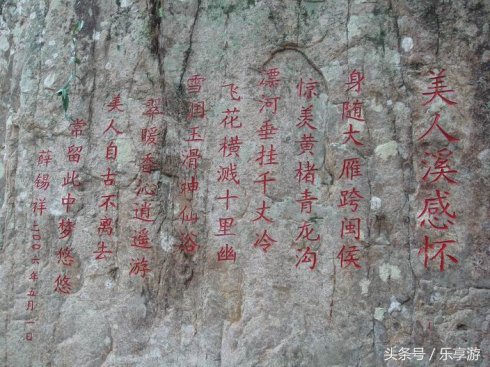 美人溪感怀
身随大雁跨闽侯
惊羡黄楮青龙沟
漂河垂挂千丈冷
飞花横溅十里幽
雪润玉滑神仙浴
翠暖香沁逍遥游
美人自古不离去
常留此中梦悠悠
薛锡祥二〇〇六年五月一日
头条号/乐享游